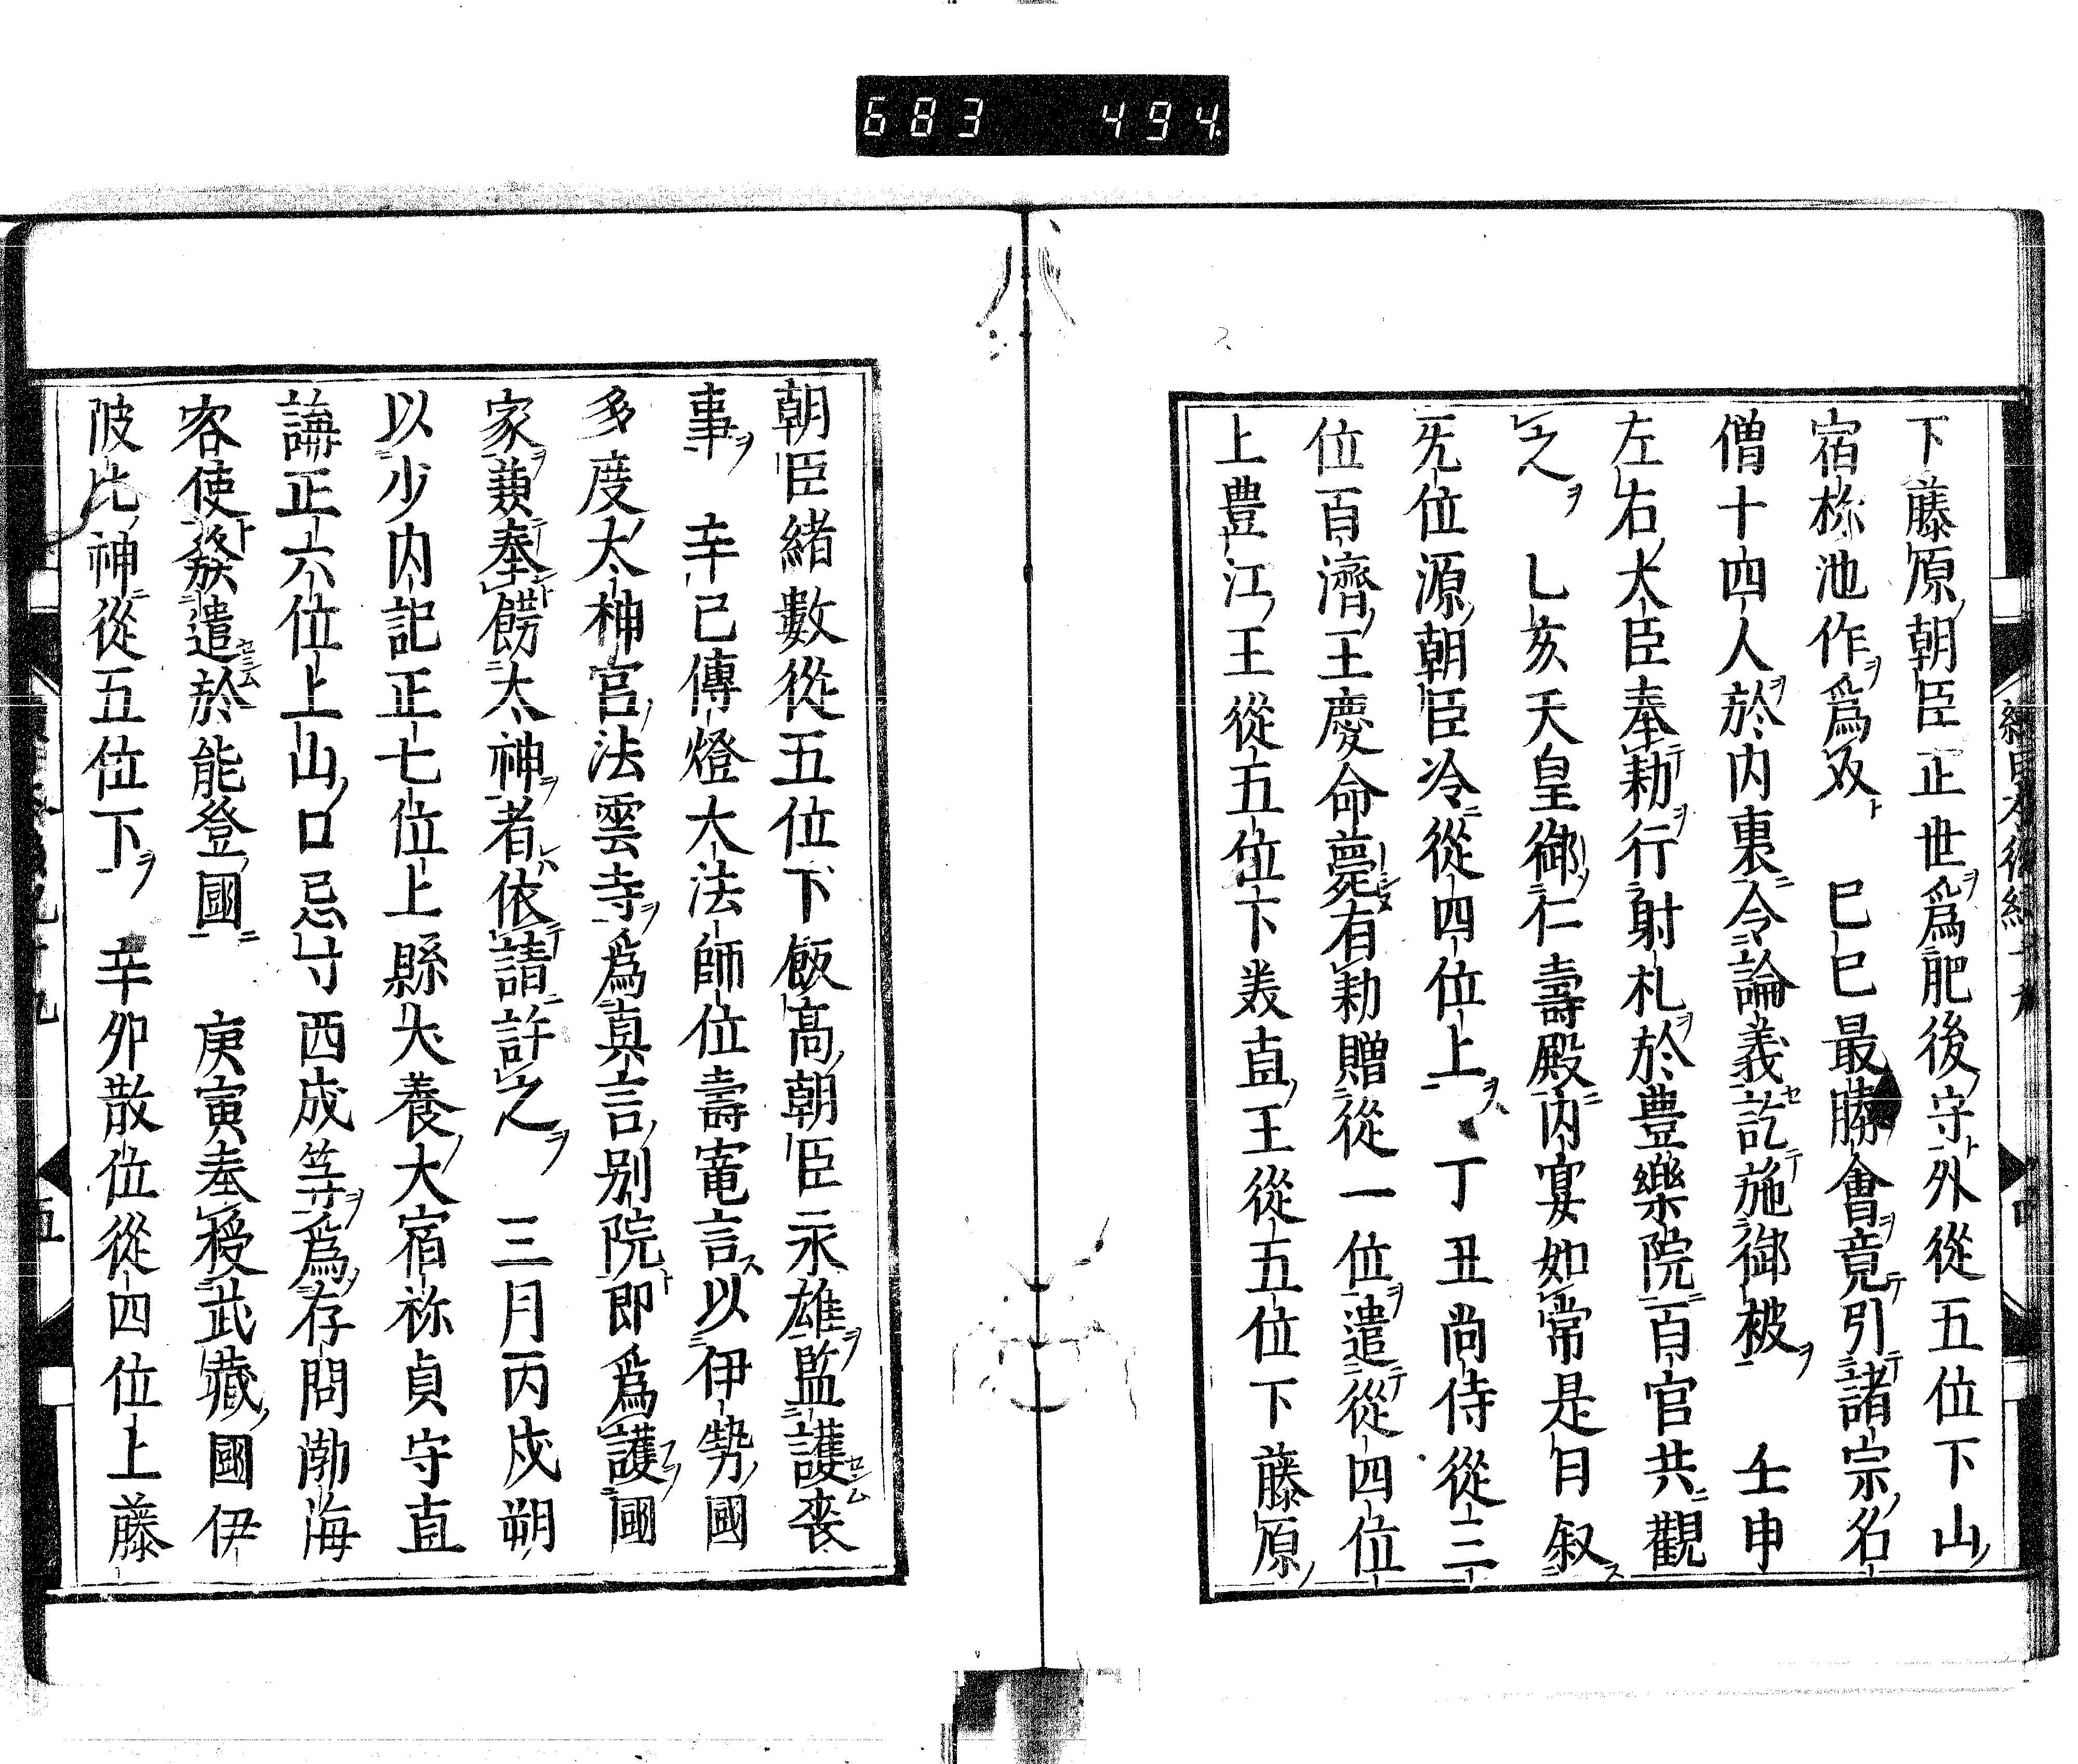 683 494
下藤原朝臣正世爲肥後守外從五位下山
宿祢池作爲介 巳巳最勝會竟引諸宗名
僧十四人於内裏令論義訖施御被 壬申
左右大臣奉勅行射礼於豊樂院百官共觀
之 乙亥天皇御仁壽殿内宴如常是日叙
无位源朝臣冷從四位上 丁丑尚侍從三
位百濟王慶命薨有勅贈從一位遣從四位
上豊江王從五位下美直王從五位下藤原
朝臣緒數從五位下飯高朝臣永雄監護喪
事 辛巳傳燈大法師位壽竜言以伊勢國
多度大神宮法雲寺爲真言別院即爲護國
家兼奉餝太神者依請許之 三月丙戌朔
以少内記正七位上縣犬養大宿祢貞守直
講正六位上山口忌寸西成等爲存問渤海
客使發遣於能登國 庚寅奉授武藏國伊
陂比神從五位下 辛卯散位從四位上藤
五